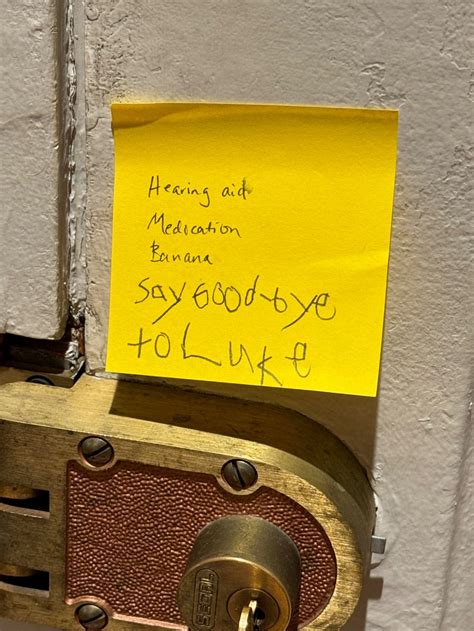 Hearing aid
Medication
Banana
Say Good-bye
to Luke
SEGAL